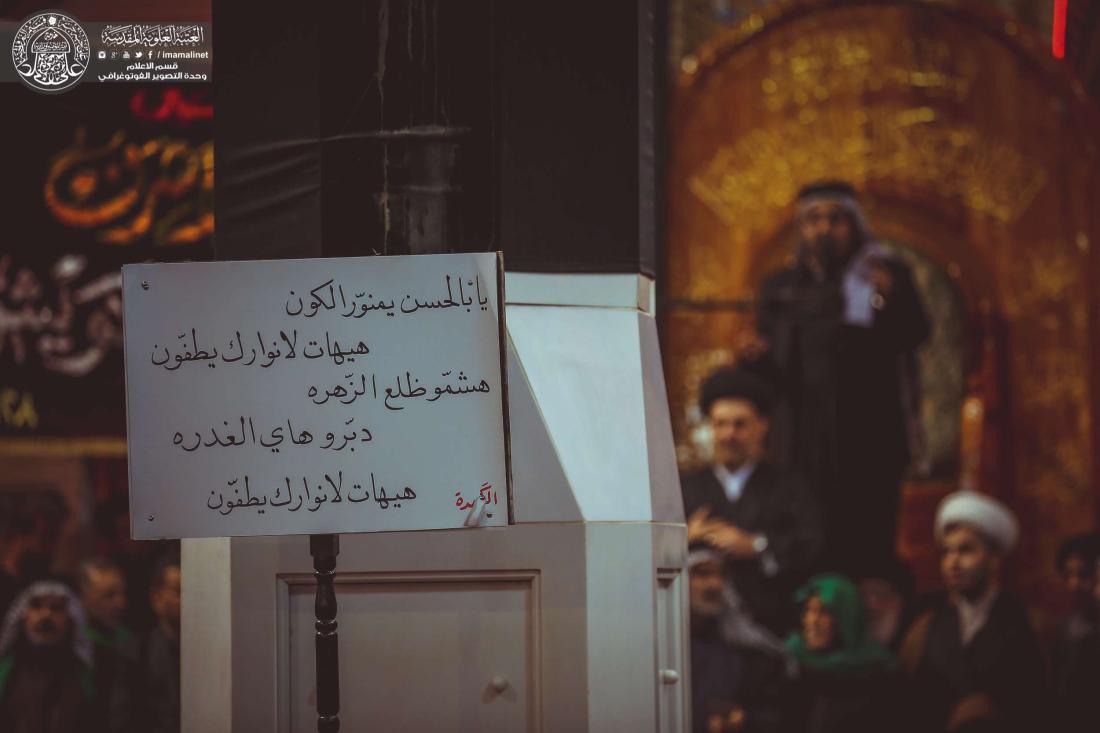 العتبة العلوية المقدسة
imamalinet
قسم الاعلام
وحدة التصوير الفوتوغرافي
يا بالحسن يمنوّر الكون
هيهات لانوارك يطفّون
هشّمو ظلع الزّهره
دبّرو هاي الغدره
هيهات لانوارك يطفّون